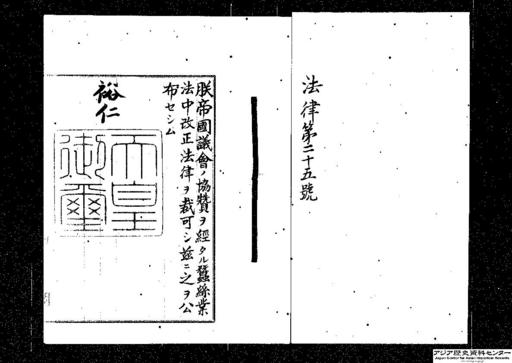 法律第二十五號
朕帝國議會ノ協贊ヲ經タル蠶絲業
法中改正法律ヲ裁可シ茲ニ之ヲ公
布セシム
裕仁
天皇
御璽
アジア歴史資料センター
Japan Center for Asian Historical Records